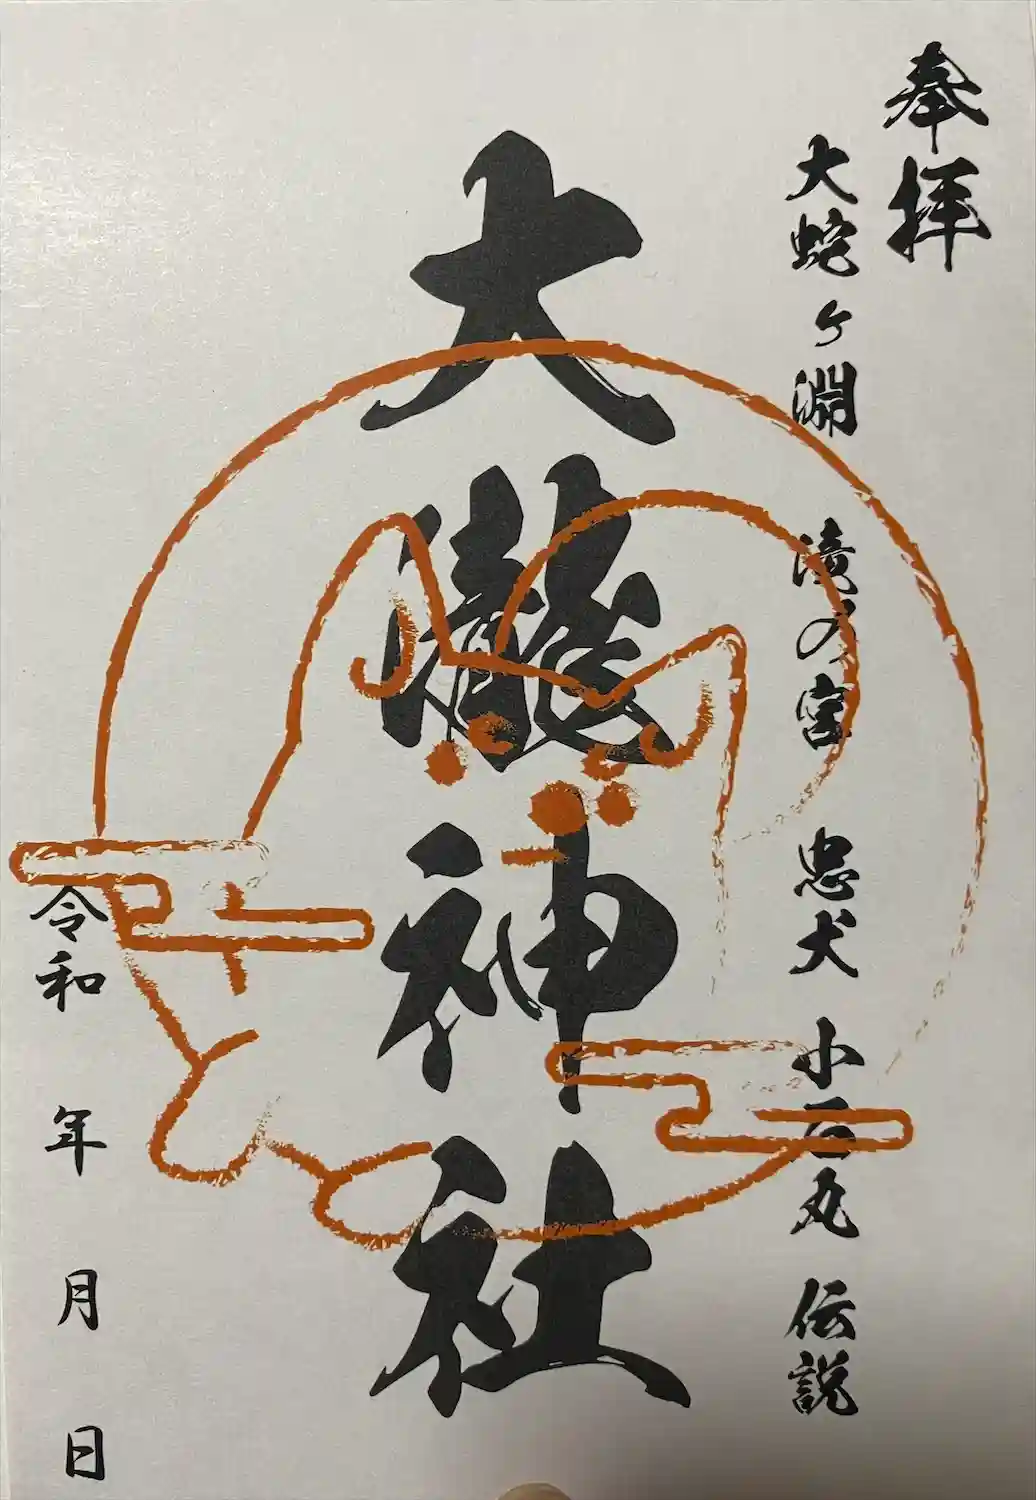 奉拝
大蛇ヶ淵 滝の宮 忠犬 小石丸 伝説
大瀧神社
令和 年 月 日